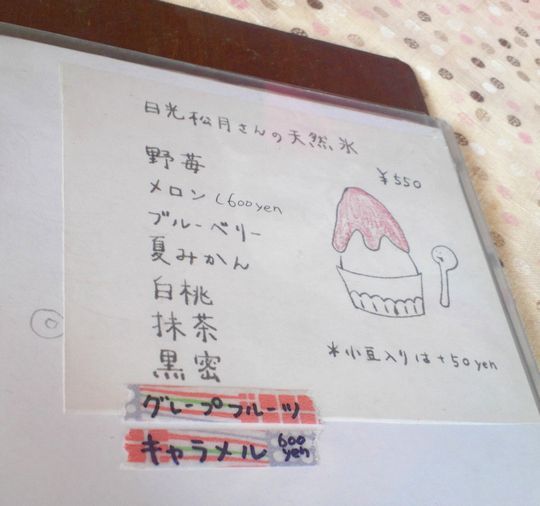 日光松月さんの天然氷
¥550
野苺
メロン (600yen
ブルーベリー
夏みかん
白桃
抹茶
黒密
*小豆入りは+50yen
グレープフルーツ
キャラメル 600 yen